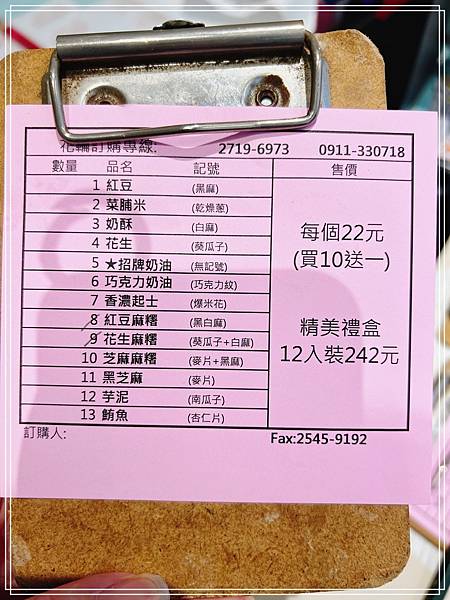 花輪訂購專線: 2719-6973 0911-330718
數量 品名 記號 售價
1 紅豆 (黑麻)
2 菜脯米 (乾燥蔥)
3 奶酥 (白麻)
4 花生 (葵瓜子)
5 ★招牌奶油 (無記號)
6 巧克力奶油 (巧克力紋)
7 香濃起士 (爆米花)
8 紅豆麻糬 (黑白麻)
9 花生麻糬 (葵瓜子+白麻)
10 芝麻麻糬 (麥片+黑麻)
11 黑芝麻 (麥片)
12 芋泥 (南瓜子)
13 鮪魚 (杏仁片)
每個22元
(買10送一)
精美禮盒
12入裝242元
訂購人: Fax:2545-9192